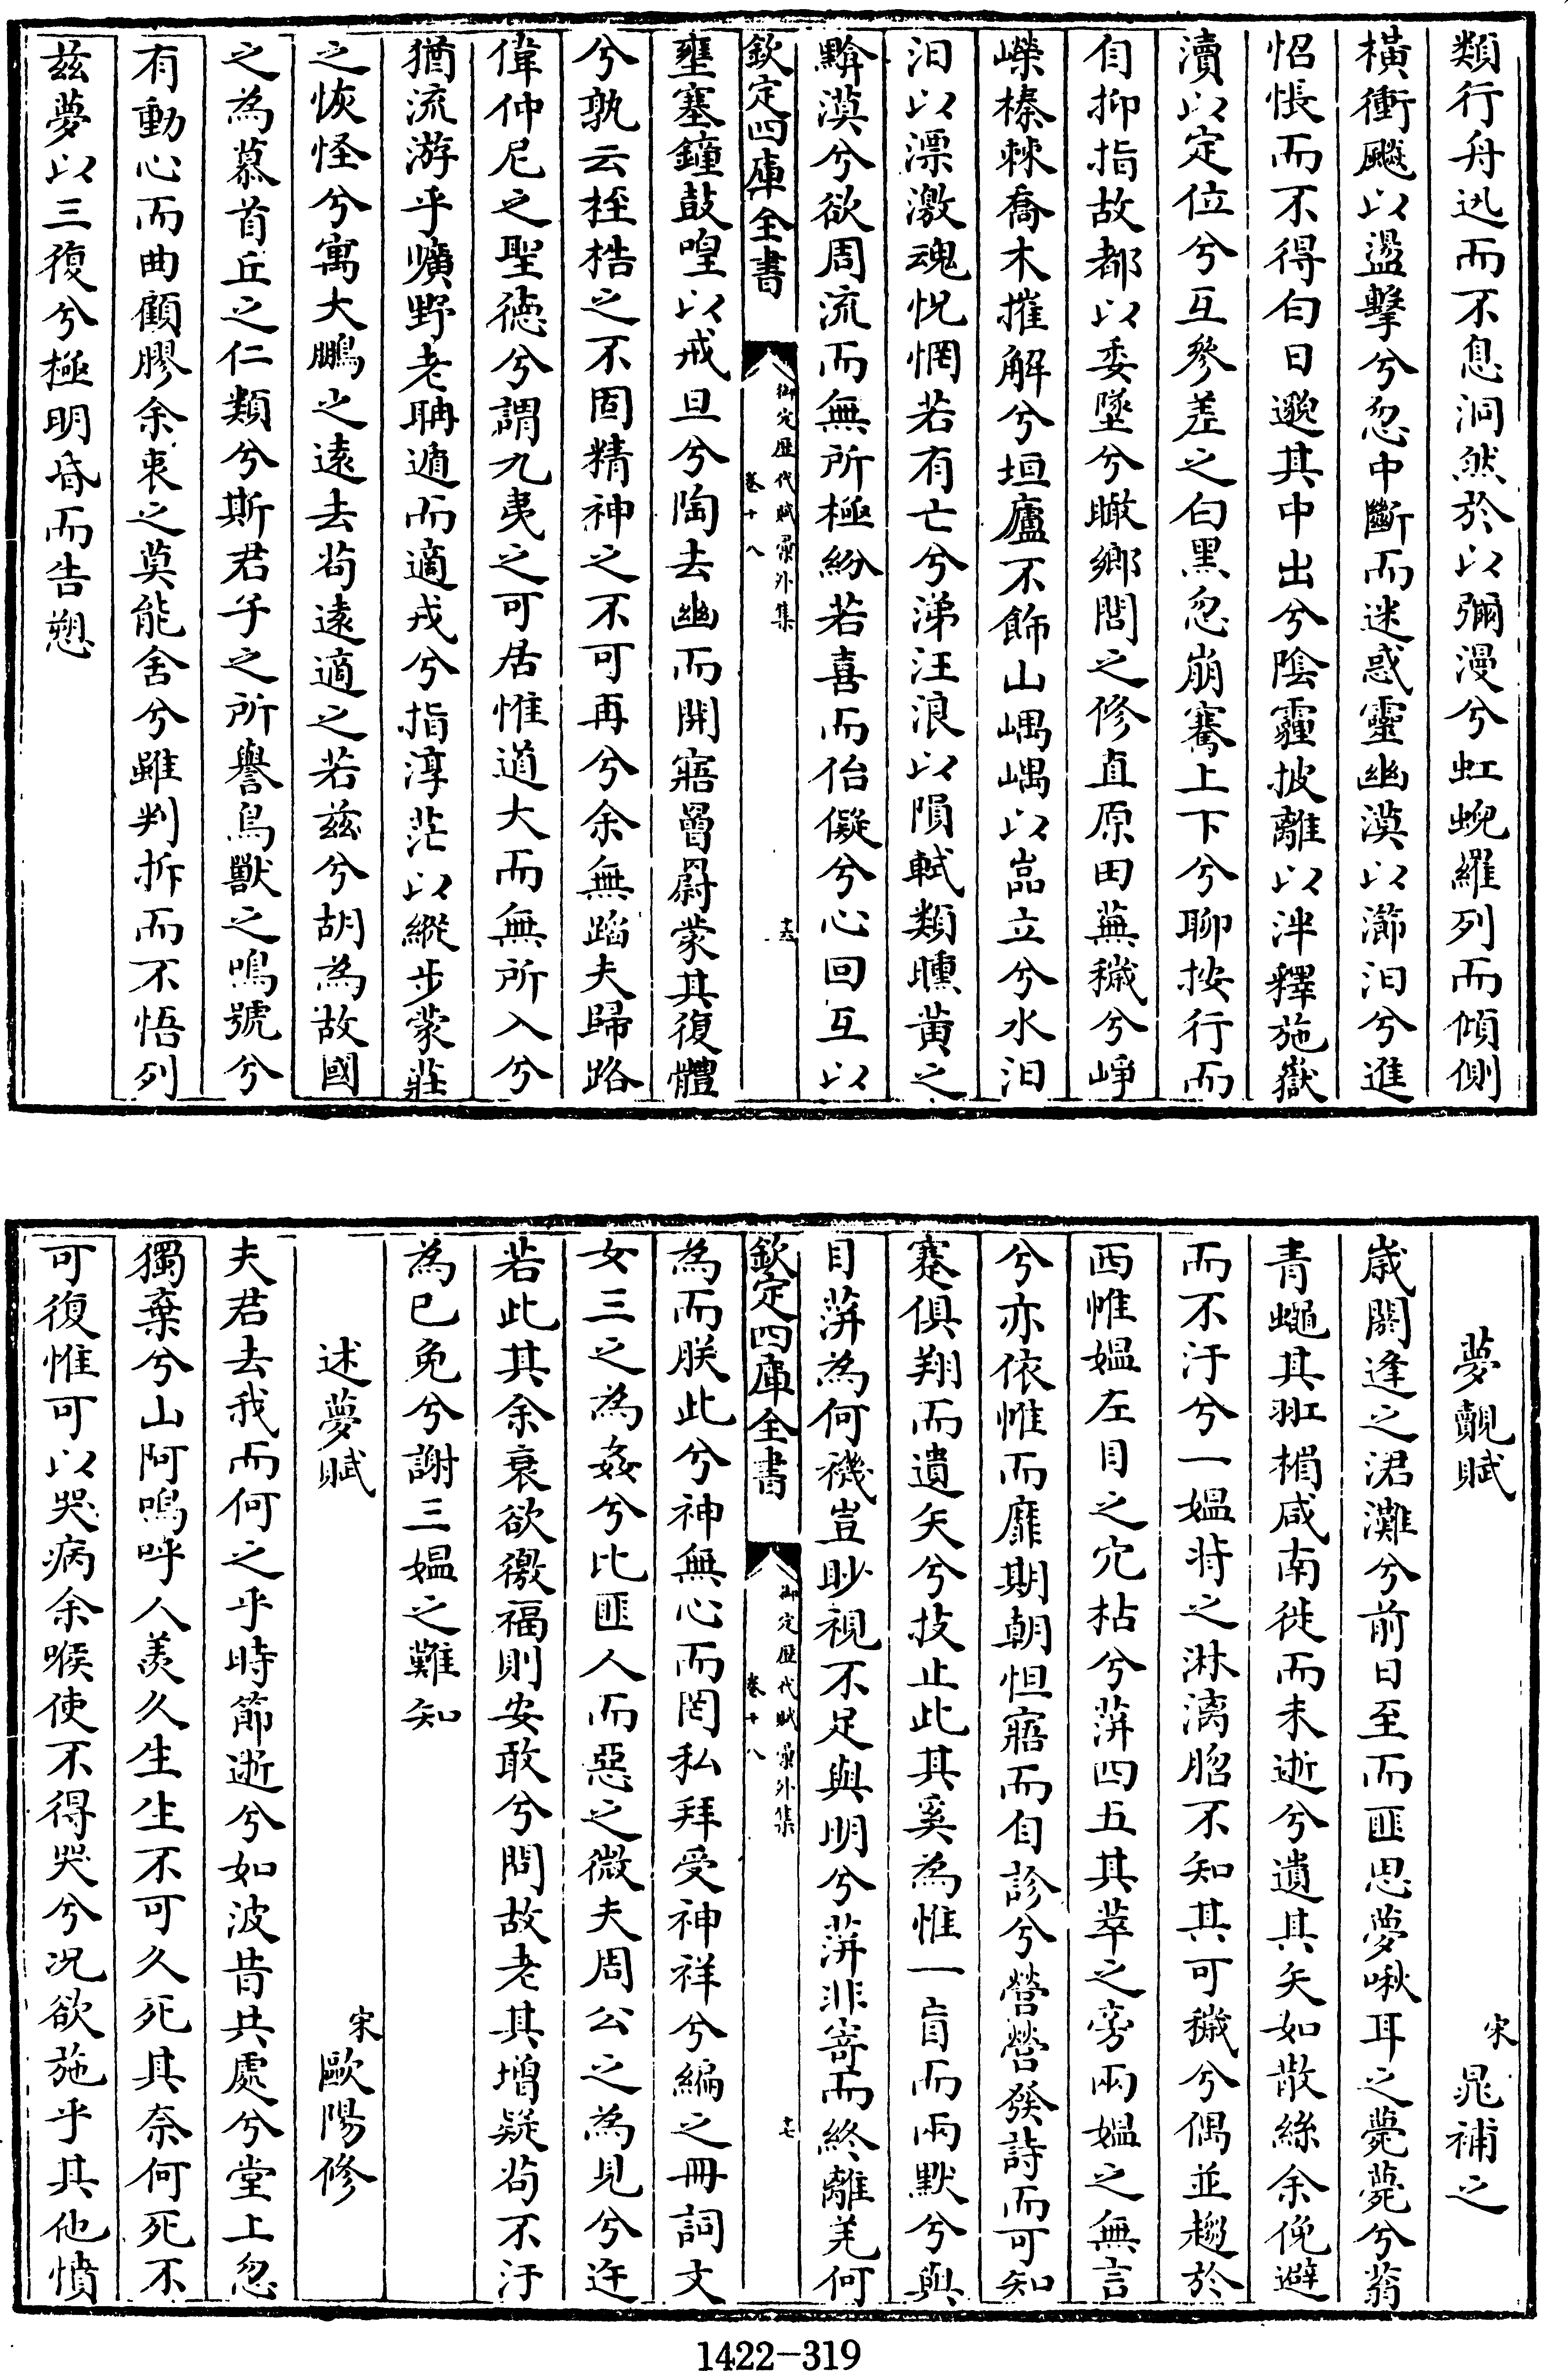 類行舟迅而不息洞然於以彌漫兮虹蜺羅列而傾側
橫衝飈以盪擊兮忽中斷而迷惑靈幽漠以瀄汨兮進
怊悵而不得白日邈其中出兮陰霾披離以泮釋施嶽
瀆以定位兮互參差之白黑忽崩騫上下兮聊按行而
自抑指故都以委墜兮瞰鄉閭之修直原田蕪穢兮崢
嶸榛棘喬木摧解兮垣廬不飾山嵎嵎以嵓立兮水汩
汩以漂激魂怳惘若有亡兮涕汪浪以隕軾類曛黄之
黭漠兮欲周流而無所極紛若喜而佁儗兮心回互以
欽定四庫全書
御定歴代賦彙外集
卷十八
十六
壅塞鐘鼓喤以戒旦兮陶去幽而開寤罾罻蒙其復體
兮孰云桎梏之不固精神之不可再兮余無蹈夫歸路
偉仲尼之聖德兮謂九夷之可居惟道大而無所入兮
猶流游乎曠野老聃遁而適戎兮指淳茫以縱步蒙莊
之恢怪兮寓大鵬之遠去苟遠適之若兹兮胡為故國
之為慕首丘之仁類兮斯君子之所譽鳥獸之鳴號兮
有動心而曲顧膠余衷之莫能舍兮雖判拆而不悟列
兹夢以三復兮極明昏而告愬
夢覿賦
宋 晁補之
歲閼逢之涒灘兮前日至而匪思夢啾耳之薨薨兮蓊
青蠅其羾楣咸南徙而未逝兮遺其矢如散絲余俛避
而不汙兮一媪將之淋漓貽不知其可穢兮偶並趨於
西惟媪左目之穴枯兮蓱四五其萃之旁兩媪之無言
兮亦依惟而靡期朝怛寤而自診兮營營發詩而可知
蹇俱翔而遺矢兮技止此其奚為惟一盲而兩默兮與
目蓱為何禨豈眇視不足與明兮蓱非寄而終離羌何
欽定四庫全書
御定歴代賦彙外集
卷十八
十七
為而朕此兮神無心而罔私拜受神祥兮編之冊詞文
女三之為姦兮比匪人而惡之微夫周公之為見兮迕
若此其余衰欲徼福則安敢兮問故老其增疑苟不汙
為已免兮謝三媪之難知
述夢賦
宋 歐陽修
夫君去我而何之乎時節逝兮如波昔共處兮堂上忽
獨棄兮山阿嗚呼人羨久生生不可久死其奈何死不
可復惟可以哭病余喉使不得哭兮况欲施乎其他憤
1422-319